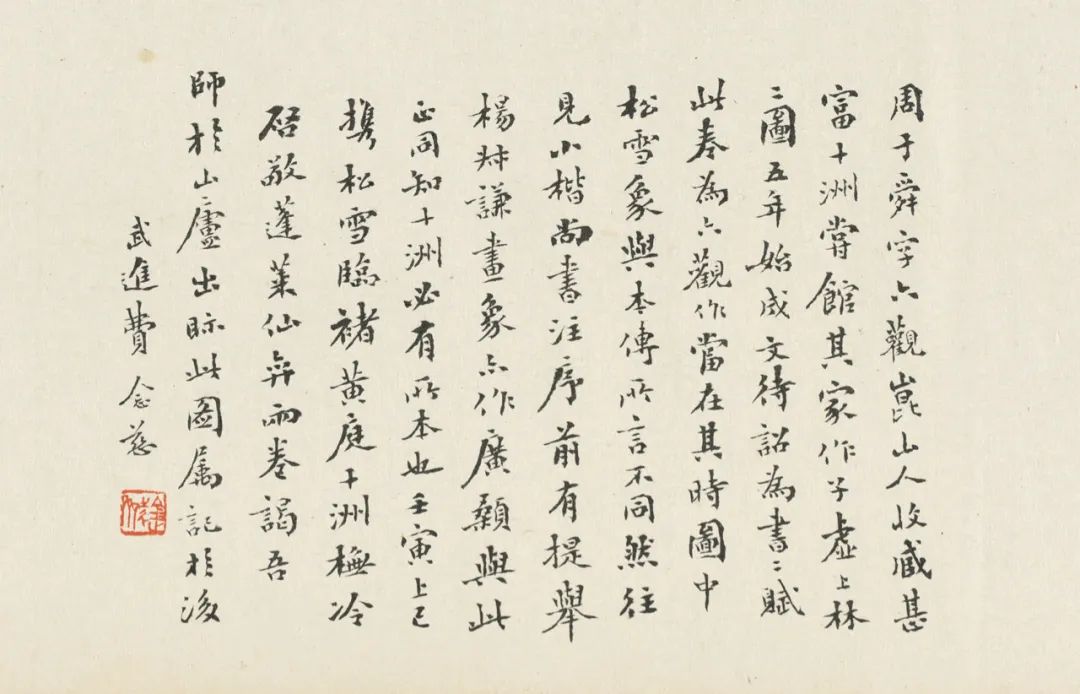 周于舜字六觀崑山人收臧甚
富十洲嘗館其家作子虛上林
二圖五年始成文待詔為書二賦
此卷為六觀作當在其時圖中
松雪象與本傳所言不同然往
見小楷尚書注序前有提舉
楊叔謙畫象亦作廣顙與此
正同知十洲必有所本也壬寅上巳
攜松雪臨褚黃庭十洲橅冷
启敬蓬萊仙弈兩卷謁吾
師於山廬出眎此圖屬記於後
武進費念慈